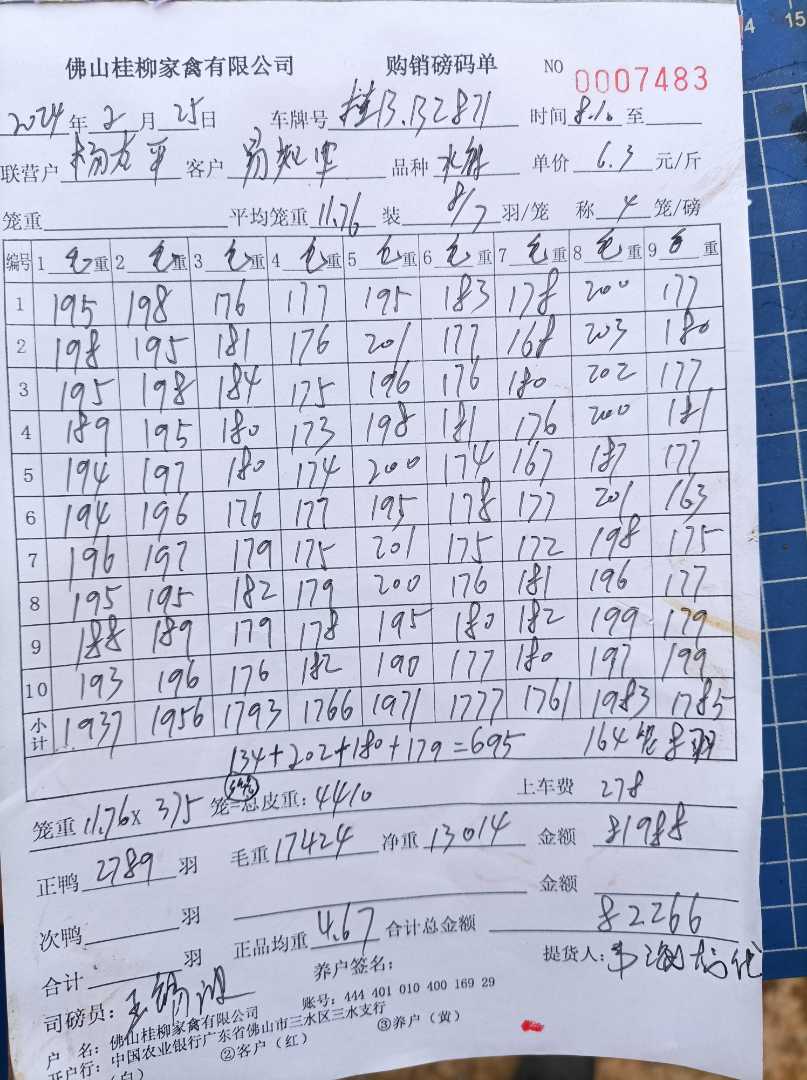 佛山桂柳家禽有限公司 购销磅码单 NO 0007483
2024年2月25日 车牌号 桂B.B2871 时间 8.10 至
联营户 客户 品种 水鸭 单价 6.3 元/斤
笼重 平均笼重 11.76 装 8/7 羽/笼 称 4 笼/磅
编号 1 毛重 2 毛重 3 毛重 4 毛重 5 毛重 6 毛重 7 毛重 8 毛重 9 毛重
1 195 198 176 177 195 183 178 200 177
2 198 195 181 176 201 177 168 203 180
3 195 198 184 175 196 176 180 202 177
4 189 195 180 173 198 181 176 200 181
5 194 197 180 174 200 174 167 187 177
6 194 196 176 177 195 178 177 201 163
7 196 197 179 175 201 175 172 198 175
8 195 195 182 179 200 176 181 196 177
9 188 189 179 178 195 180 182 199 179
10 193 196 176 182 190 177 180 197 199
小计 1937 1956 1793 1766 1971 1777 1761 1983 1785
134+202+180+179=695 164笼8羽
笼重 11.76× 375 笼=总皮重: 4410 上车费 278
正鸭 2789 羽 毛重 17424 净重 13014 金额 81988
次鸭 羽 金额
合计 羽 正品均重 4.67 合计总金额 82266
司磅员: 养户签名: 提货人:
户 名: 佛山桂柳家禽有限公司 账号: 444 401 010 400 169 29
开户行: 中国农业银行广东省佛山市三水区三水支行
(白) ②客户(红) ③养户(黄)